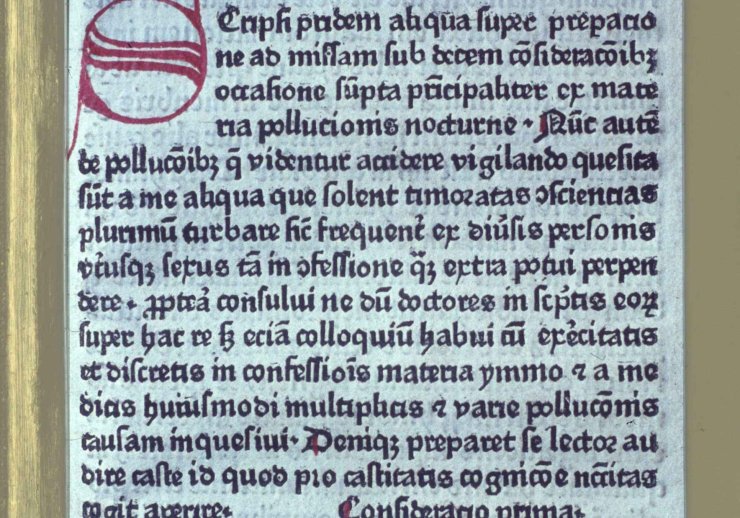 SCripsi pridem aliqua super preparacio
ne ad missam sub decem cōsideracōibꝫ
occasione sūpta prīcipaliter ex mate
ria pollucionis nocturne · Nūc autē
de pollucōibꝫ q̄ videntur accidere vigilando quesita
sūt a me aliqua que solent timoratas ↄsciencias
plurimū turbare sic̄ frequent᷑ ex diūsis personis
vt᷑usqꝫ sexus tā in ↄfessione q̄ꝫ extra potui perpen
dere · ꝓpterā consului ne dū doctores in scp̄tis eoꝝ
super hac re sꝫ eciā colloquiū habui cū exēcitatis
et discretis in confessioīs materia ymmo ⁊ a me
dicis huiusmodi multiplicis ⁊ varie pollucōnis
causam inquesiui · Deniqꝫ preparet se lector au
dire caste id quod pro castitatis cognicōe nc̄citas
cogit aperire · Consideracio prima ·